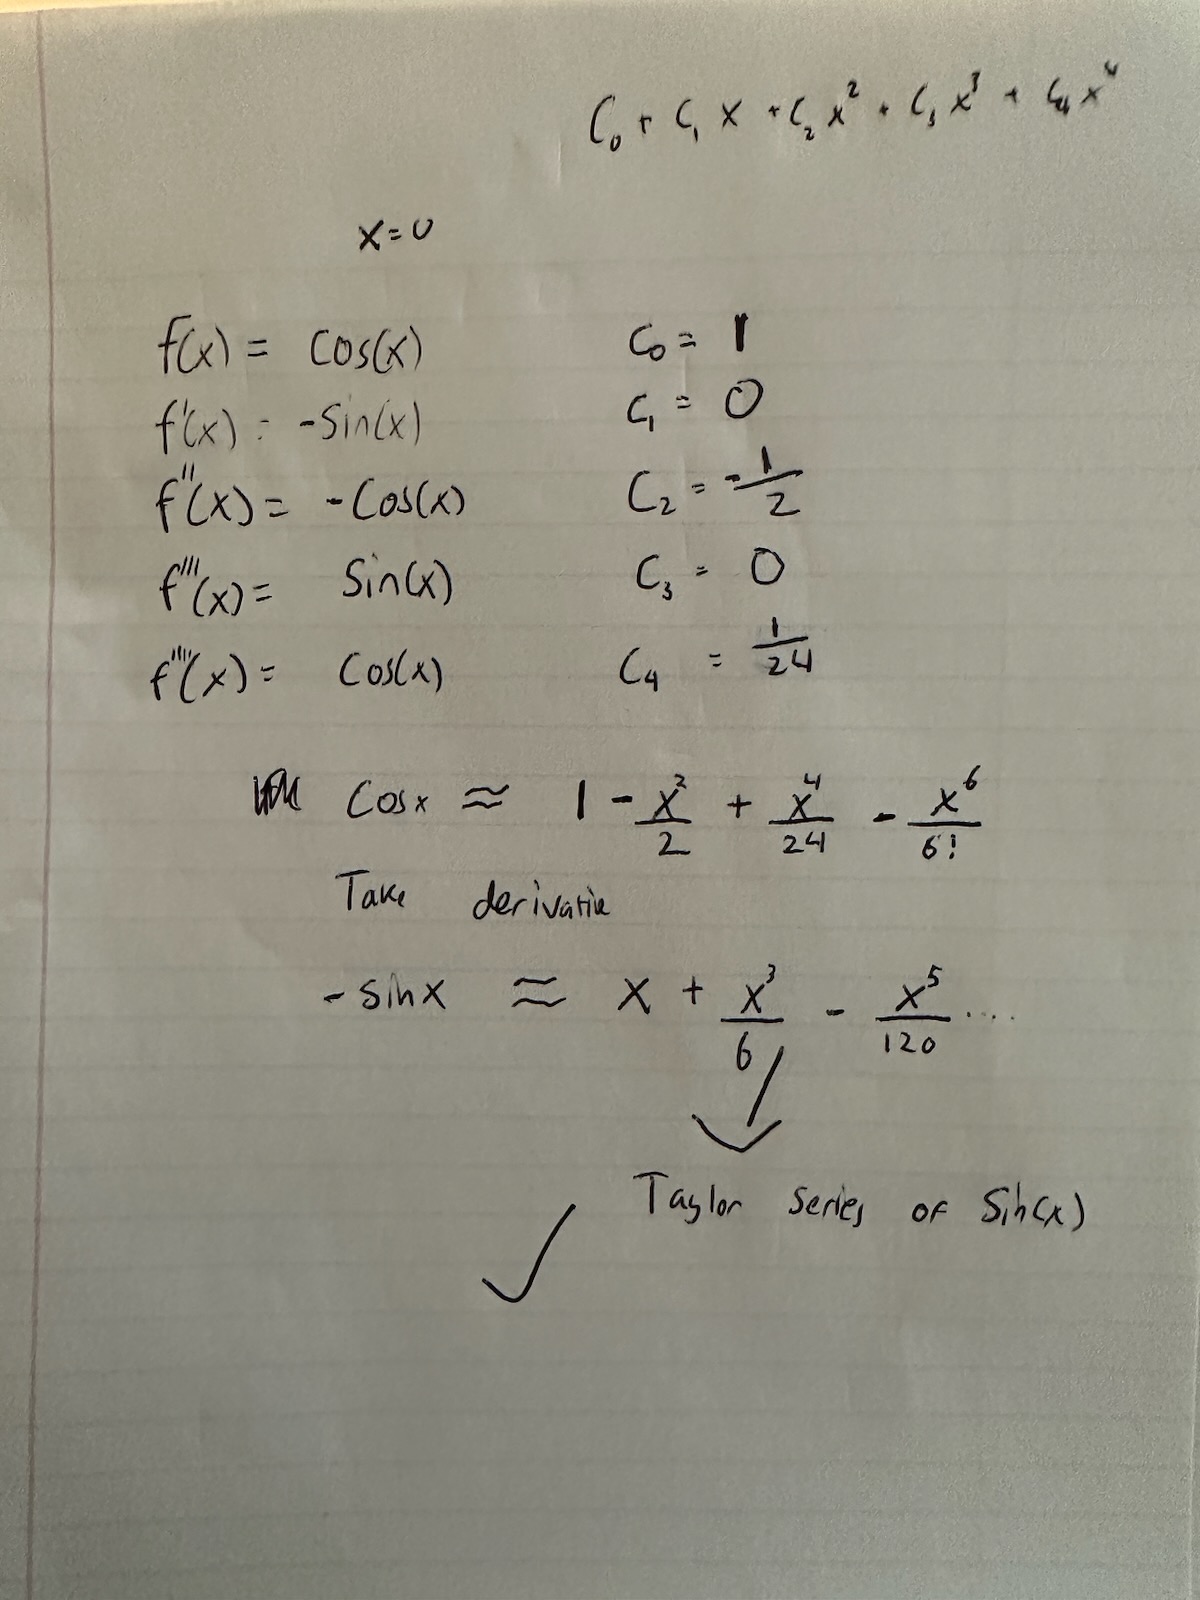 C₀ + C₁ x + C₂ x² + C₃ x³ + C₄ x⁴
x = 0
f(x) = cos(x) C₀ = 1
f'(x) = -sin(x) C₁ = 0
f''(x) = -cos(x) C₂ = -1/2
f'''(x) = sin(x) C₃ = 0
f''''(x) = cos(x) C₄ = 1/24
cosx ≈ 1 - x²/2 + x⁴/24 - x⁶/6!
Take derivative
-sinx ≈ x + x³/6 - x⁵/120 ....
Taylor series of sin(x)